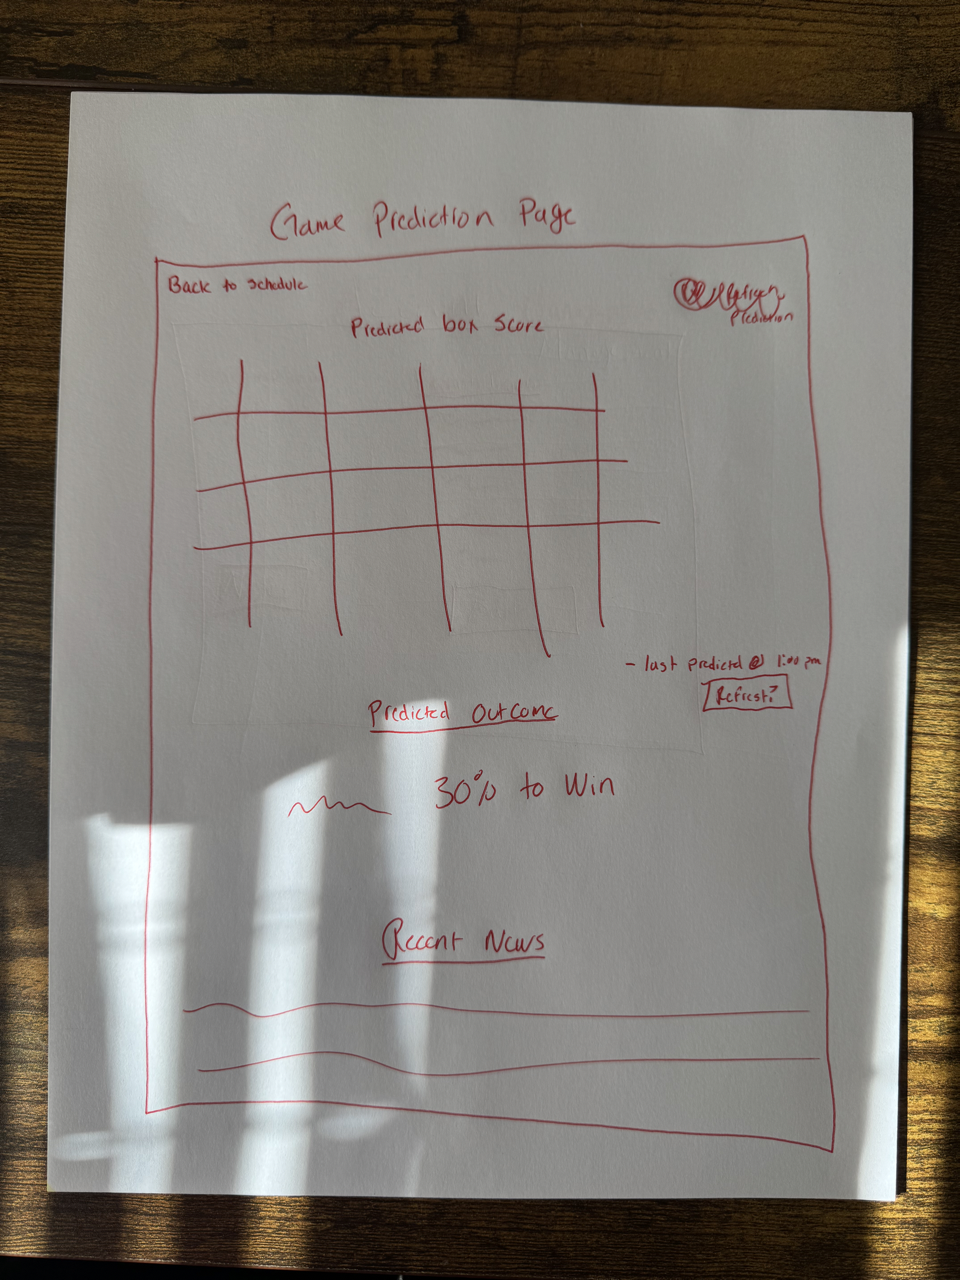 Game Prediction Page
Back to Schedule
Prediction
Predicted box Score
- last predicted @ 1:00 pm
Refresh?
Predicted Outcome
30% to Win
Recent News